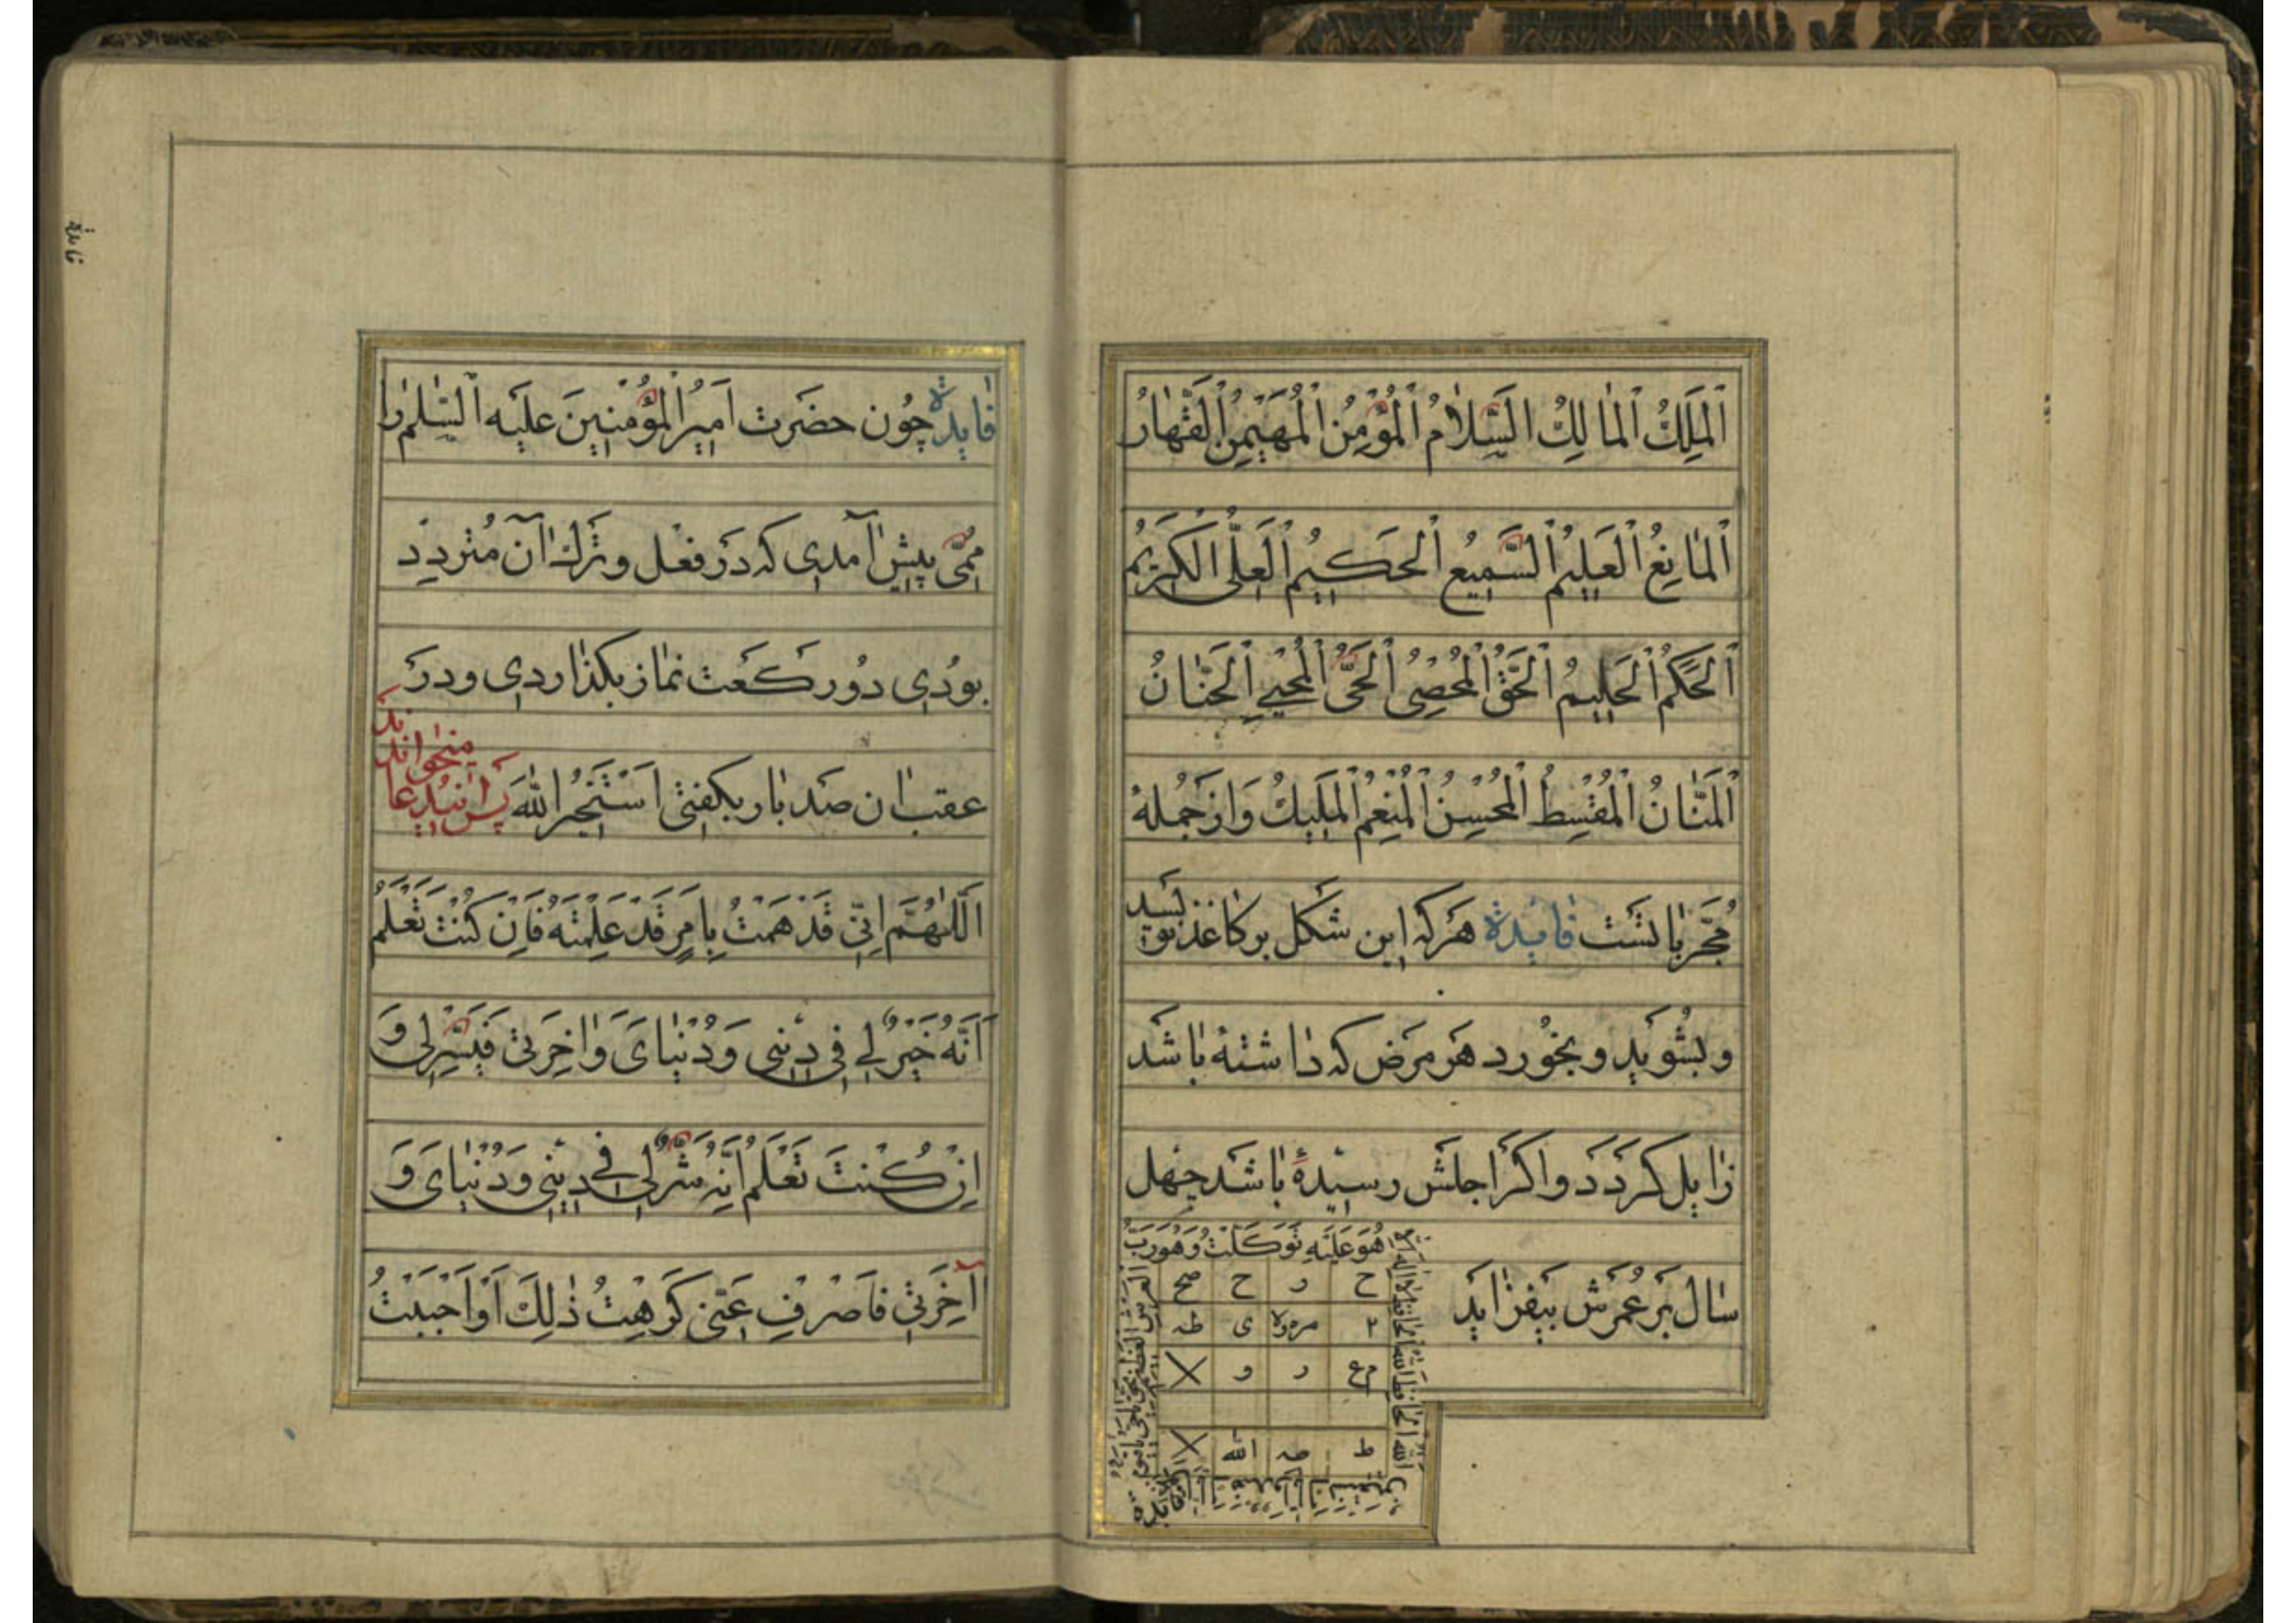 اَلْمَلِكُ اَلْمَالِكُ اَلسَّلَامُ اَلْمُؤْمِنُ اَلْمُهَيْمِنُ اَلْقَهَّارُ
اَلْمَانِعُ اَلْعَلِيمُ اَلسَّمِيعُ اَلْحَكِيمُ اَلْعَلِيُّ الْكَرِيمُ
اَلْحَكَمُ اَلْحَلِيمُ اَلْحَقُّ اَلْمُحْصِىُ اَلْحَىُّ اَلْمُحْيِي اَلْحَنَّانُ
اَلْمَنَّانُ اَلْمُقْسِطُ اَلْمُحْسِنُ اَلْمُنْعِمُ اَلْمَلِيكُ وَازجُمله
مُجَرَّباتست فایدة هرکه این شکل بر کاغذ بنویسد
و بشوید و بخورد هر مرض که داشته باشد
زایل کردد و اکر اجلش رسیدهٔ باشد چهل
سال بر عمرش بیفزاید
هُوَ عَلَيْهِ تَوَكَّلْتُ وَهُوَ رَبُّ
العرش العظيم
ح ر ح صح
ی طه
ر و
ط صه الله
فایدة چون حضرت امیر المؤمنین علیه السلم را
مُهِمّی پیش آمدی که در فعل و ترک آن متردد
بودی دو رکعت نماز بکذاردی و در
عقب ان صد بار بکفتی اَسْتَخيرُ اللهَ پس انید عا
میخواند
اَللّٰهُمَّ اِنّي قَدْ هَمَمْتُ بِاَمْرٍ قَدْ عَلِمْتَهُ فَاِنْ كُنْتَ تَعْلَمُ
اَنَّهُ خَيْرٌ لِي فِي دِيْنِي وَ دُنْيَاىَ وَاٰخِرَتي فَيَسِّرْ لِي وَ
اِنْ كُنْتَ تَعْلَمُ اَنَّهُ شَرٌّ لِي في دِيْنِي وَ دُنْيَاىَ وَ
آخِرَتي فَاصْرِفْ عَنّي كَرِهْتُ ذٰلِكَ اَوْ اَحْبَبْتُ